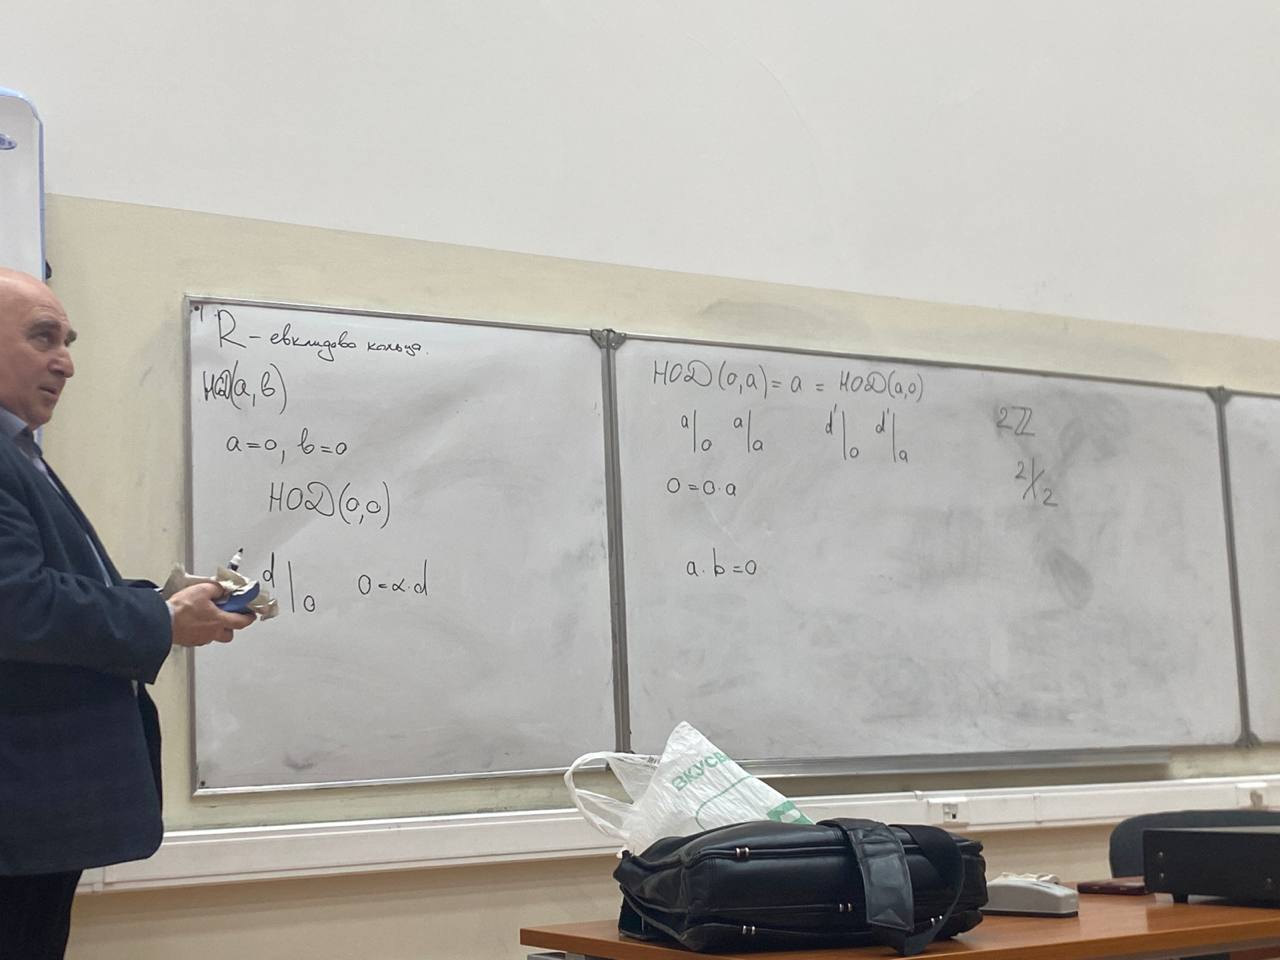 R - евклидово кольцо.
НОД(a, b)
a=0, b=0
НОД(0,0)
d|0 0=α·d
НОД(0,a)=a=НОД(a,0)
a|0 a|a d'|0 d'|a
0=0·a
a·b=0
2ℤ
2∤2
ВКУСВ